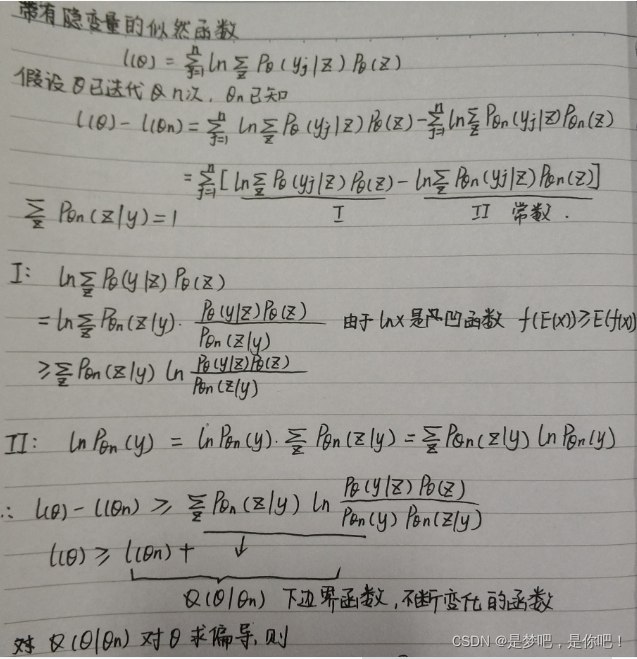 带有隐变量的似然函数
l(θ) = Σ_{j=1}^{n} ln Σ_z Pθ(yj|z) Pθ(z)
假设θ已迭代θ n次, θn已知
l(θ) - l(θn) = Σ_{j=1}^{n} ln Σ_z Pθ(yj|z) Pθ(z) - Σ_{j=1}^{n} ln Σ_z Pθn(yj|z) Pθn(z)
= Σ_{j=1}^{n} [ln Σ_z Pθ(yj|z) Pθ(z) - ln Σ_z Pθn(yj|z) Pθn(z)]
Σ_z Pθn(z|y) = 1 I II 常数.
I: ln Σ_z Pθ(y|z) Pθ(z)
= ln Σ_z Pθn(z|y) · Pθ(y|z)Pθ(z) / Pθn(z|y) 由于lnx是凹函数 f(E(x)) ≥ E(f(x))
≥ Σ_z Pθn(z|y) ln Pθ(y|z)Pθ(z) / Pθn(z|y)
II: ln Pθn(y) = ln Pθn(y) · Σ_z Pθn(z|y) = Σ_z Pθn(z|y) ln Pθn(y)
∴ l(θ) - l(θn) ≥ Σ_z Pθn(z|y) ln Pθ(y|z) Pθ(z) / Pθn(y) Pθn(z|y)
l(θ) ≥ l(θn) + ↓
Q(θ|θn) 下边界函数, 不断变化的函数
对 Q(θ|θn) 对θ求偏导, 则
CSDN @是梦吧，是你吧！